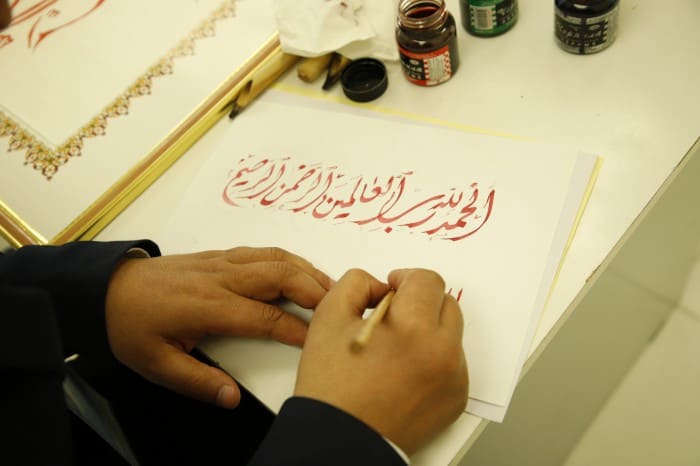 الحمد لله رب العالمین الرحمن الرحیم